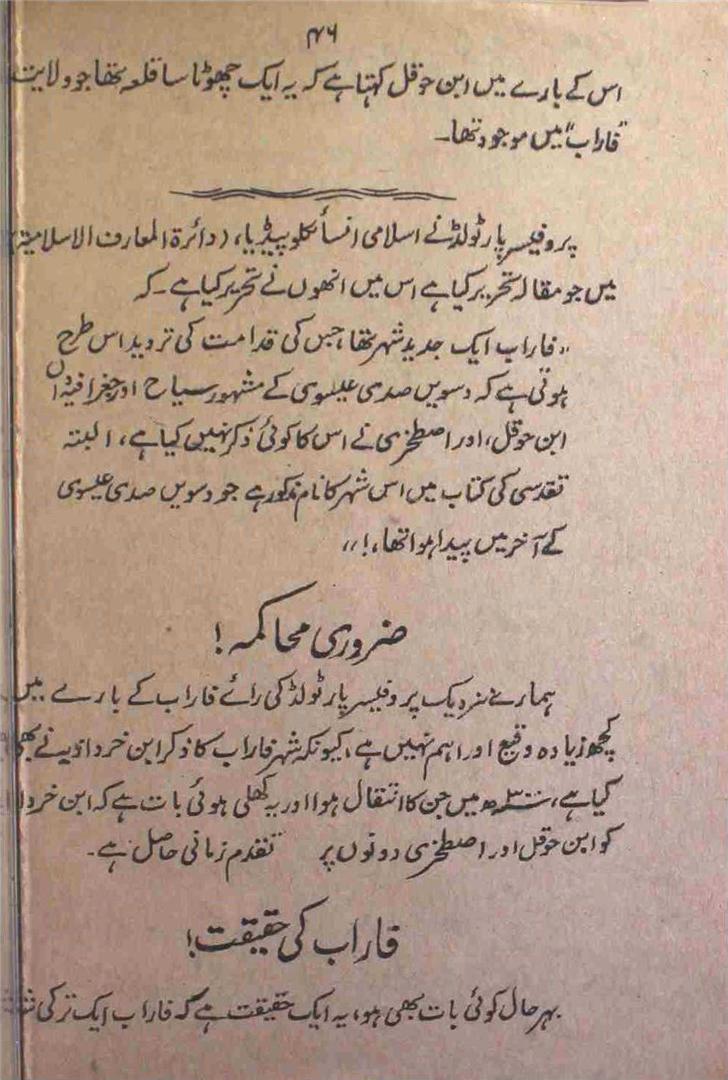 ۴۶
اس کے بارے میں ابن حوقل کہتا ہے کہ یہ ایک چھوٹا سا قلعہ تھا جو ولایت
"فاراب" میں موجود تھا۔
پروفیسر بارٹولڈ نے اسلامی انسائکلوپیڈیا، (دائرۃ المعارف الاسلامیۃ)
میں جو مقالہ تحریر کیا ہے اس میں انھوں نے تحریر کیا ہے۔ کہ
"فاراب ایک جدید شہر تھا، جس کی قدامت کی تردید اس طرح
ہوتی ہے کہ دسویں صدی عیسوی کے مشہور سیاح اور جغرافیہ داں
ابن حوقل، اور اصطخری نے اس کا کوئی ذکر نہیں کیا ہے، البتہ
تقدسی کی کتاب میں اس شہر کا نام مذکور ہے جو دسویں صدی عیسوی
کے آخر میں پیدا ہوا تھا،!"
ضروری محاکمہ!
ہمارے نزدیک پروفیسر بارٹولڈ کی رائے فاراب کے بارے میں
کچھ زیادہ وقیع اور اہم نہیں ہے، کیونکہ شہر فاراب کا ذکر ابن خرداذبہ نے بھی
کیا ہے، ۳۰۰ھ میں جن کا انتقال ہوا اور یہ کھلی ہوئی بات ہے کہ ابن
کو ابن حوقل اور اصطخری دونوں پر تقدم زمانی حاصل ہے۔
فاراب کی حقیقت!
بہر حال کوئی بات بھی ہو، یہ ایک حقیقت ہے کہ فاراب ایک ترکی